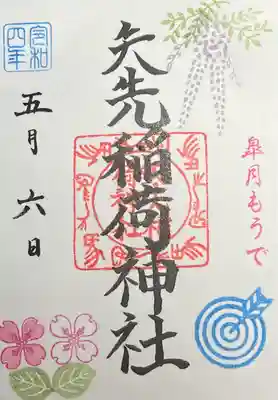 皐月もうで
矢先稲荷神社
令和
四年
五月六日